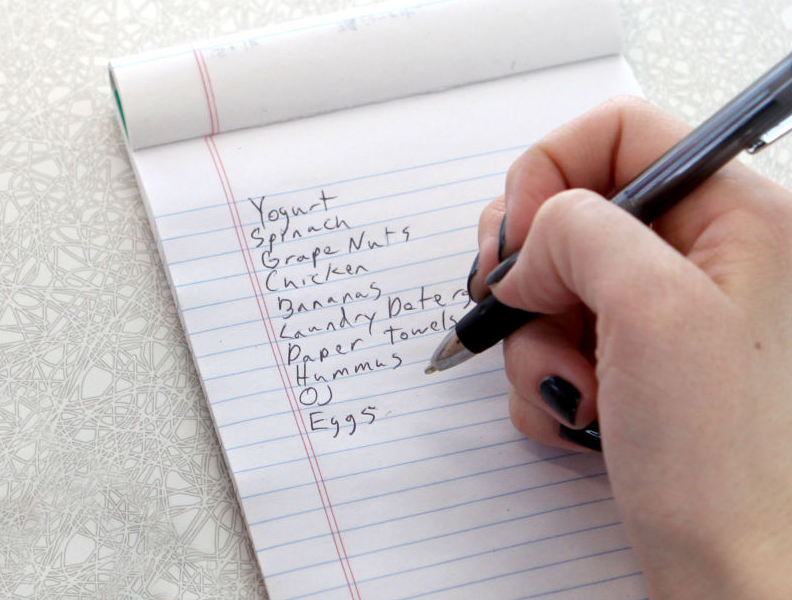 Yogurt
Spinach
Grape Nuts
Chicken
Bananas
Laundry
Paper towels
Hummus
OJ
Eggs